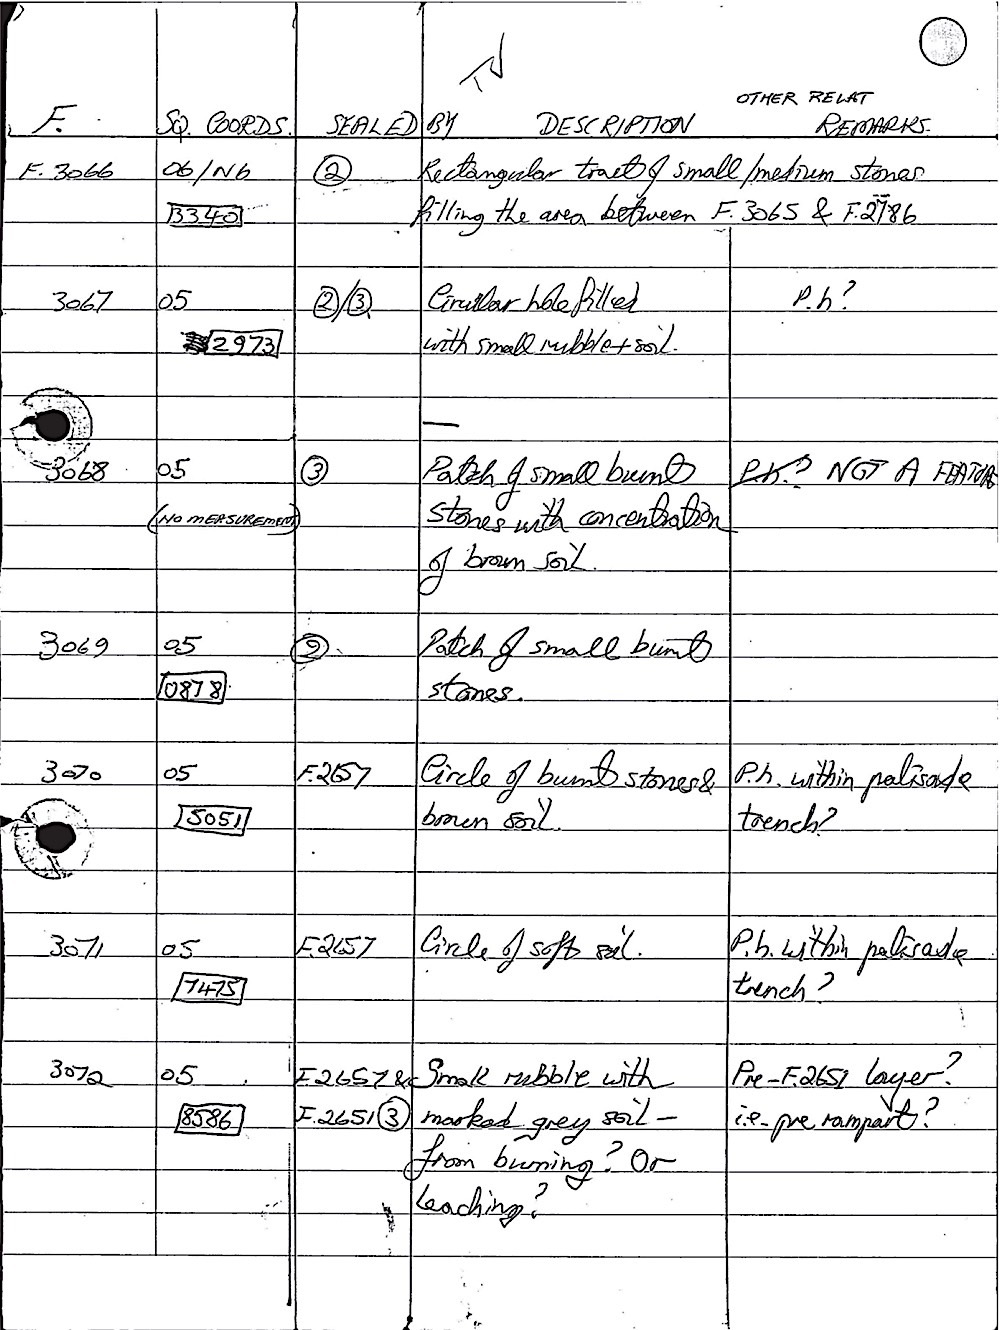 OTHER RELAT
F. SQ. COORDS. SEALED BY DESCRIPTION REMARKS.
F. 3066 06/N6 ② Rectangular tract of small/medium stones
3340 filling the area between F. 3065 & F.2786
3067 05 ②/③ Circular hole filled P.h?
2973 with small rubble + soil.
3068 05 ③ Patch of small burnt P.h.? NOT A FEATURE
(NO MEASUREMENT) stones with concentration
of brown soil.
3069 05 ② Patch of small burnt
0878 stones.
3070 05 F.2657 Circle of burnt stones & P.h. within palisade
5051 brown soil. trench?
3071 05 F.2657 Circle of soft soil. P.h. within palisade
7475 trench?
3072 05 F.2657 & Small rubble with Pre-F.2651 layer?
8586 F.2651 ③ marked grey soil – i.e. pre rampart?
from burning? Or
leaching?